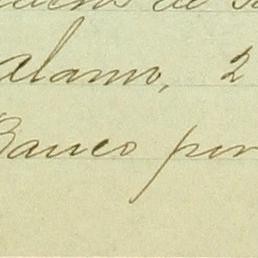 de
alamo, 2
Banco por